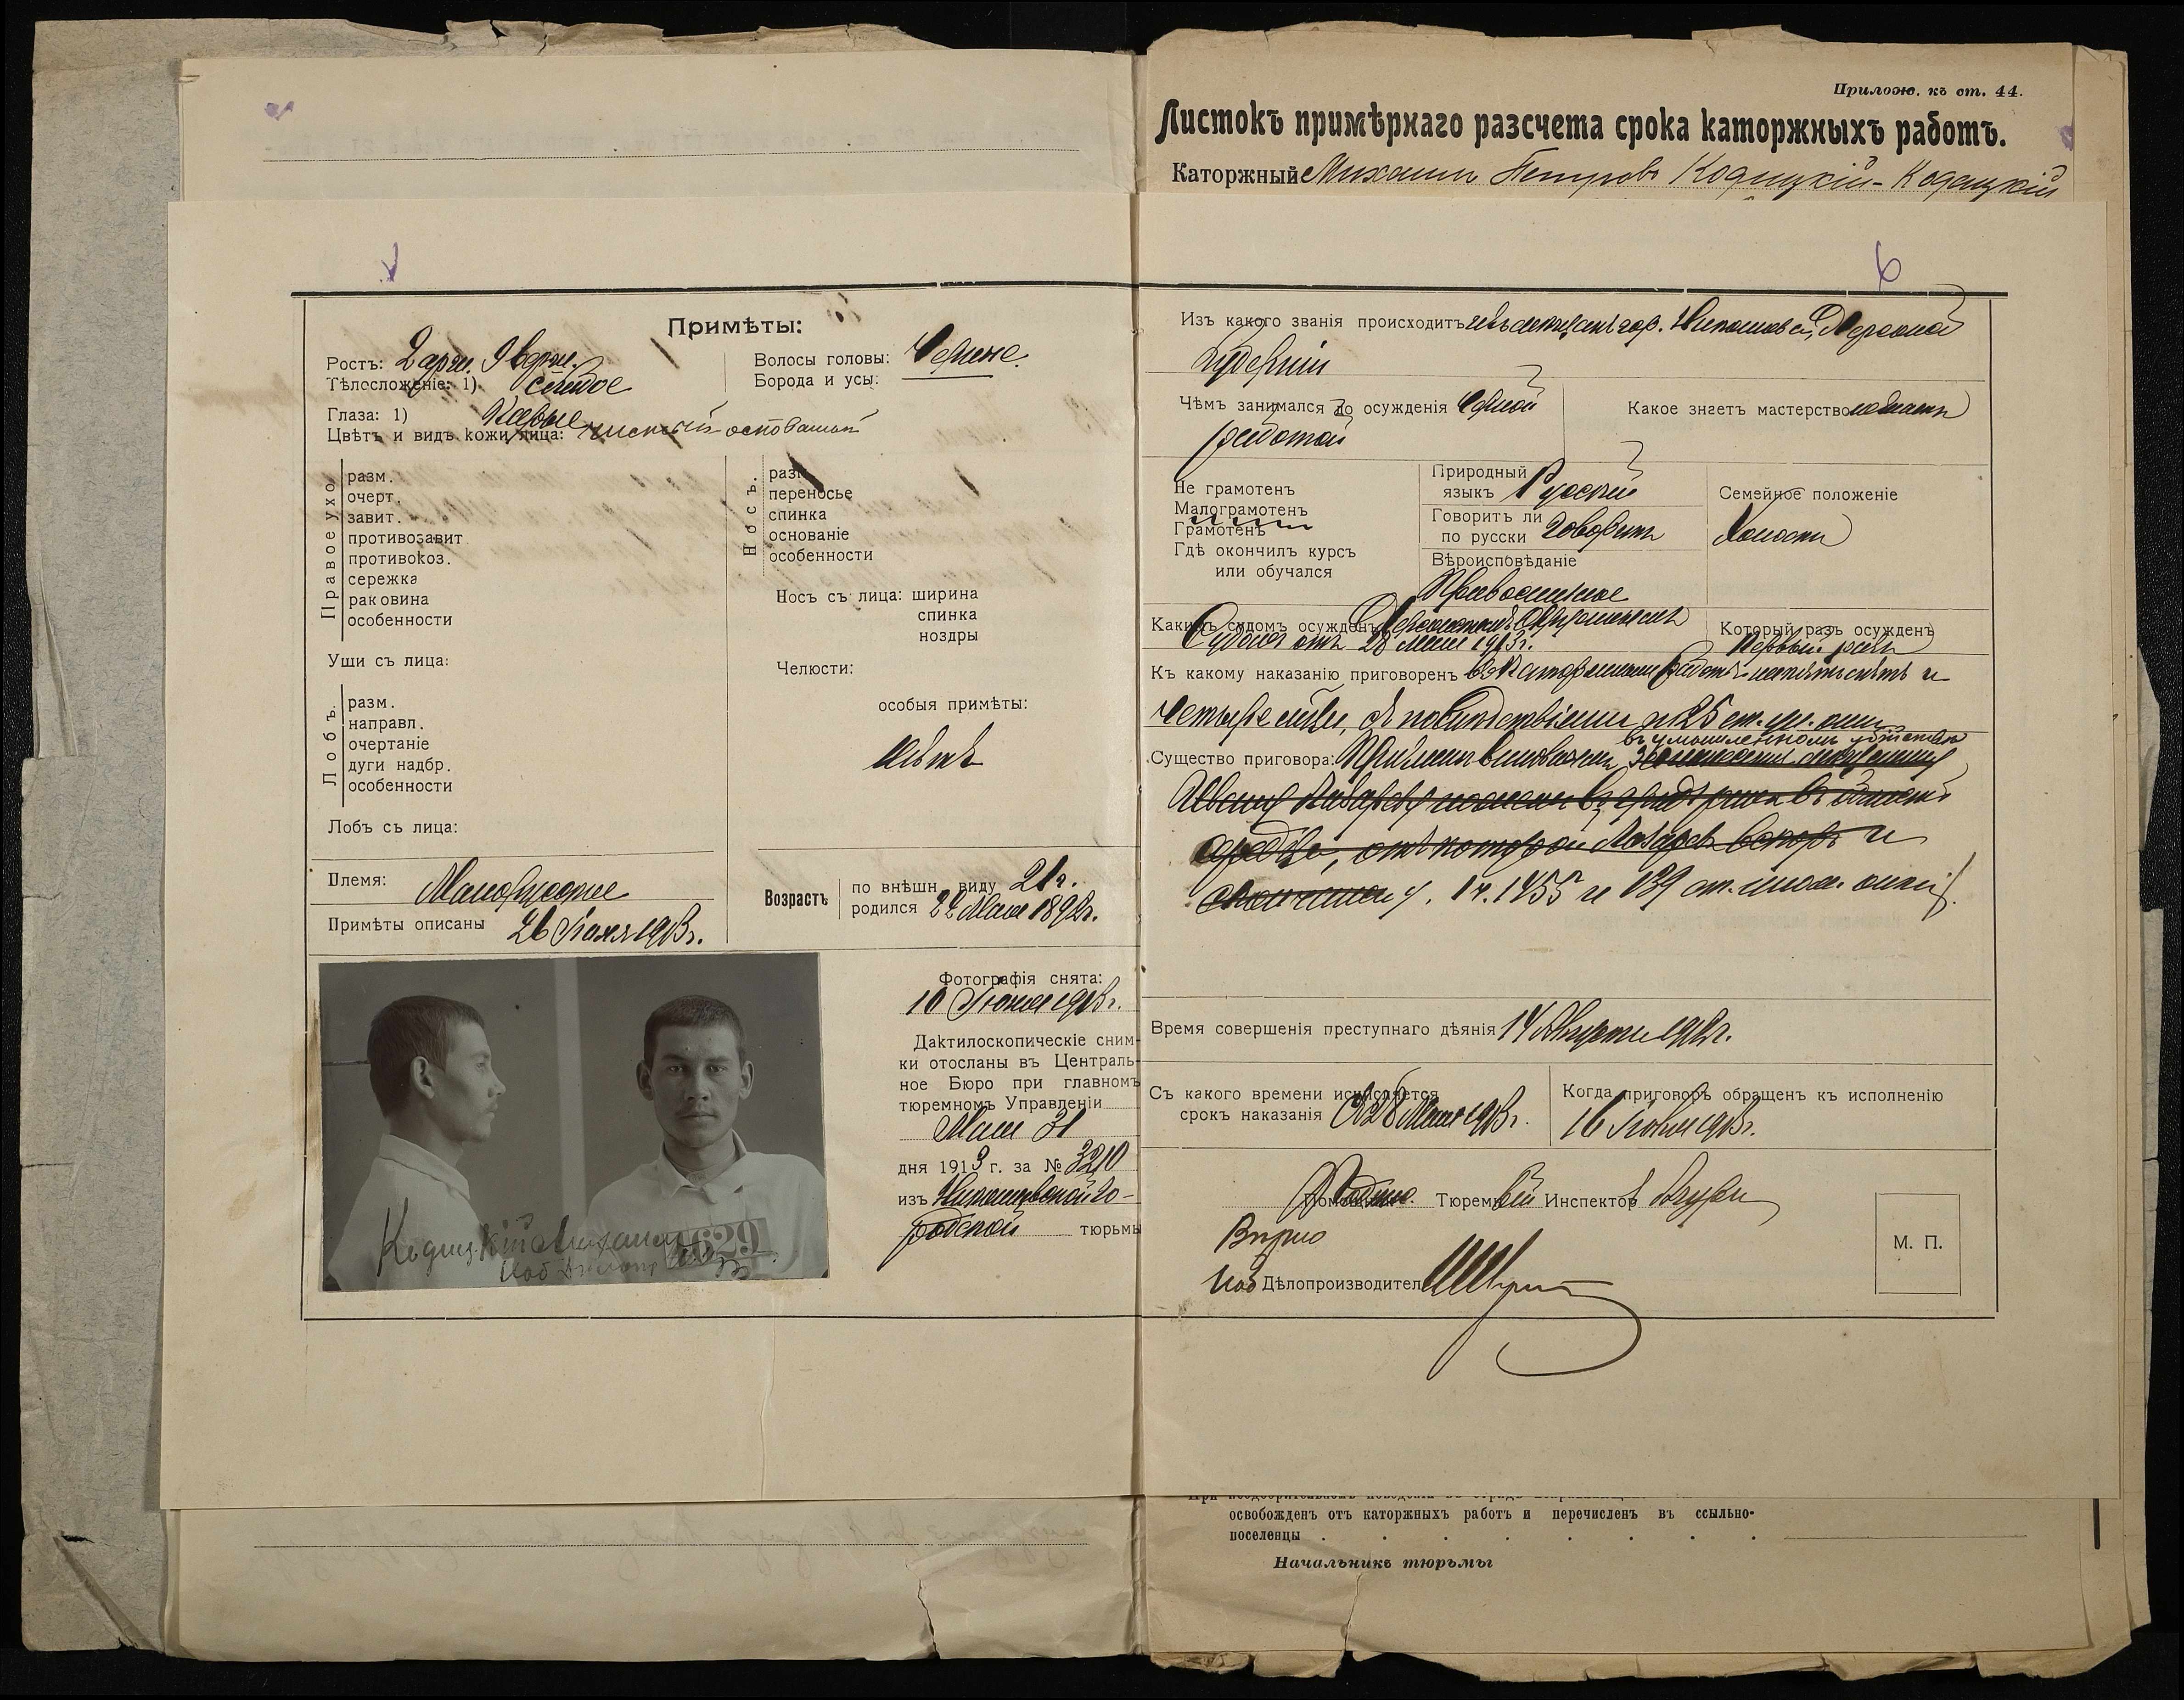 Прилож. къ ст. 44.
Листокъ примѣрнаго разсчета срока каторжныхъ работъ.
Каторжный Михаилъ Петровъ Кодицкій-Кодацкій
Примѣты:
Ростъ: 2 арш. 9 верш.
Тѣлосложеніе: 1)
Волосы головы: Черные.
Борода и усы:
Глаза: 1) Карые
Цвѣтъ и видъ кожи лица: чистый
Правое ухо
разм.
очерт.
завит.
противозавит
противокоз.
сережка
раковина
особенности
Носъ.
разм
переносье
спинка
основаніе
особенности
Носъ съ лица: ширина
спинка
ноздры
Уши съ лица:
Челюсти:
Лобъ.
разм.
направл.
очертаніе
дуги надбр.
особенности
особыя примѣты:
нѣтъ
Лобъ съ лица:
Племя: Малорусское
Возрастъ
по внѣшн. виду 21 г.
родился 22 Мая 1892 г.
Примѣты описаны 26 1913 г.
Фотографія снята:
10 Іюня 1913 г.
Дактилоскопическіе сним-
ки отосланы въ Централь-
ное Бюро при главномъ
тюремномъ Управленіи
Мая 31
дня 1913 г. за № 3210
изъ Николаевской го-
родской тюрьмы
Кодицкій Михаилъ
1629
6
Изъ какого званія происходитъ изъ мѣщанъ гор. Николаева, Херсонской
губерніи
Чѣмъ занимался до осужденія Черной
работой
Какое знаетъ мастерство
Не грамотенъ
Малограмотенъ
Грамотенъ
Гдѣ окончилъ курсъ
или обучался
Природный
языкъ Русскій
Говоритъ ли
по русски Говоритъ
Вѣроисповѣданіе
Православное
Семейное положеніе
Холостъ
Какимъ судомъ осужденъ Херсонскимъ Окружнымъ
Судомъ отъ 28 Мая 1913 г.
Который разъ осужденъ
Первый разъ
Къ какому наказанію приговоренъ въ Каторжныя работы на пять лѣтъ и
четыре съ послѣдствіями по 25 ст. ул. о нак.
Существо приговора: Признанъ виновнымъ въ умышленномъ убійствѣ
Ивану Лазареву ножемъ въ грудь въ области
сердца, отъ которой Лазаревъ вскорѣ и
скончался, 1 ч. 1455 и 139 ст. улож. о нак.
Время совершенія преступнаго дѣянія 14 Августа 1912 г.
Съ какого времени исчисляется
срокъ наказанія Съ 28 Мая 1913 г.
Когда приговоръ обращенъ къ исполненію
16 Іюня 1913 г.
Тюремный Инспекторъ
Врио
Дѣлопроизводителя
М. П.
освобожденъ отъ каторжныхъ работъ и перечисленъ въ ссыльно-
поселенцы
Начальникъ тюрьмы